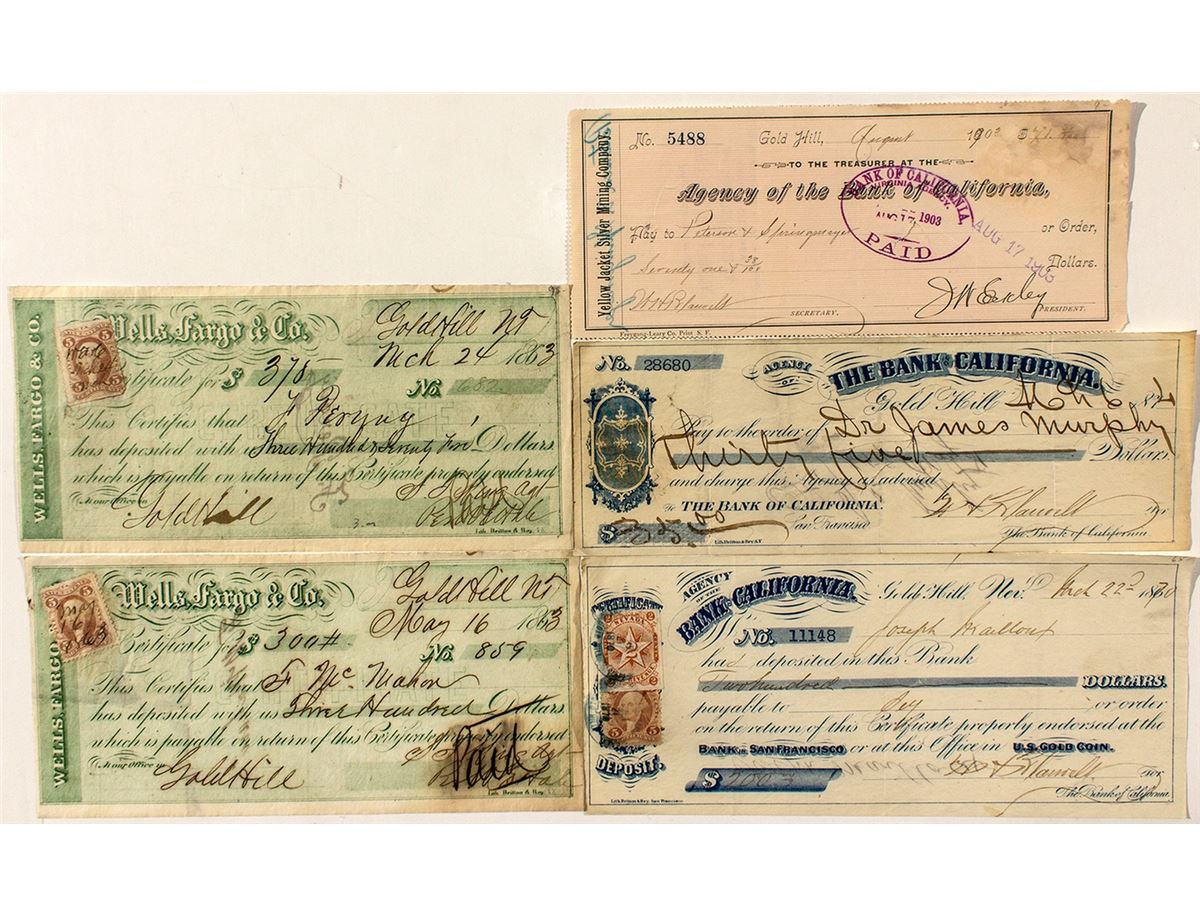 WELLS, FARGO & CO.
Wells, Fargo & Co.
Gold Hill NT
Mch 24 1863
Certificate for $ 375
No. 682
This Certifies that
has deposited with us Three Hundred & Seventy Five Dollars
which is payable on return of this Certificate properly endorsed
At our Office in Gold Hill
Agt
Lith. Britton & Rey, S.F.
WELLS, FARGO
Wells, Fargo & Co.
Gold Hill NT
May 16 1863
Certificate for $ 300#
No. 859
This Certifies that F Mc Mahon
has deposited with us Three Hundred Dollars
which is payable on return of this Certificate properly endorsed
Paid
At our Office in Gold Hill
Agt
Lith. Britton & Rey, S.F.
Yellow Jacket Silver Mining Company,
No. 5488
Gold Hill, August 1903
TO THE TREASURER AT THE
Agency of the Bank of California,
BANK OF CALIFORNIA,
VIRGINIA AGENCY.
AUG 17 1903
PAID
AUG 17 1903
Pay to Peterson & Springmeyer or Order,
Seventy one & 38/100 Dollars.
SECRETARY.
PRESIDENT.
Freygang-Leary Co. Print S. F.
No. 28680
AGENCY OF THE BANK OF CALIFORNIA.
Gold Hill Mch 6 187
Pay to the order of Dr James Murphy
Thirty five Dollars
and charge this Agency as advised
To THE BANK OF CALIFORNIA.
San Francisco
for
The Bank of California
$ 35 00
Lith. Britton & Rey S.F.
CERTIFICATE
DEPOSIT.
AGENCY OF THE
BANK OF CALIFORNIA
Gold Hill, Nev. Mch 22d 1870
No. 11148
Joseph Mailloux
has deposited in this Bank
Two hundred DOLLARS.
payable to or order
on the return of this Certificate properly endorsed at the
BANK IN SAN FRANCISCO or at this Office in U.S. GOLD COIN.
$ 200
for
The Bank of California.
Lith. Britton & Rey, San Francisco